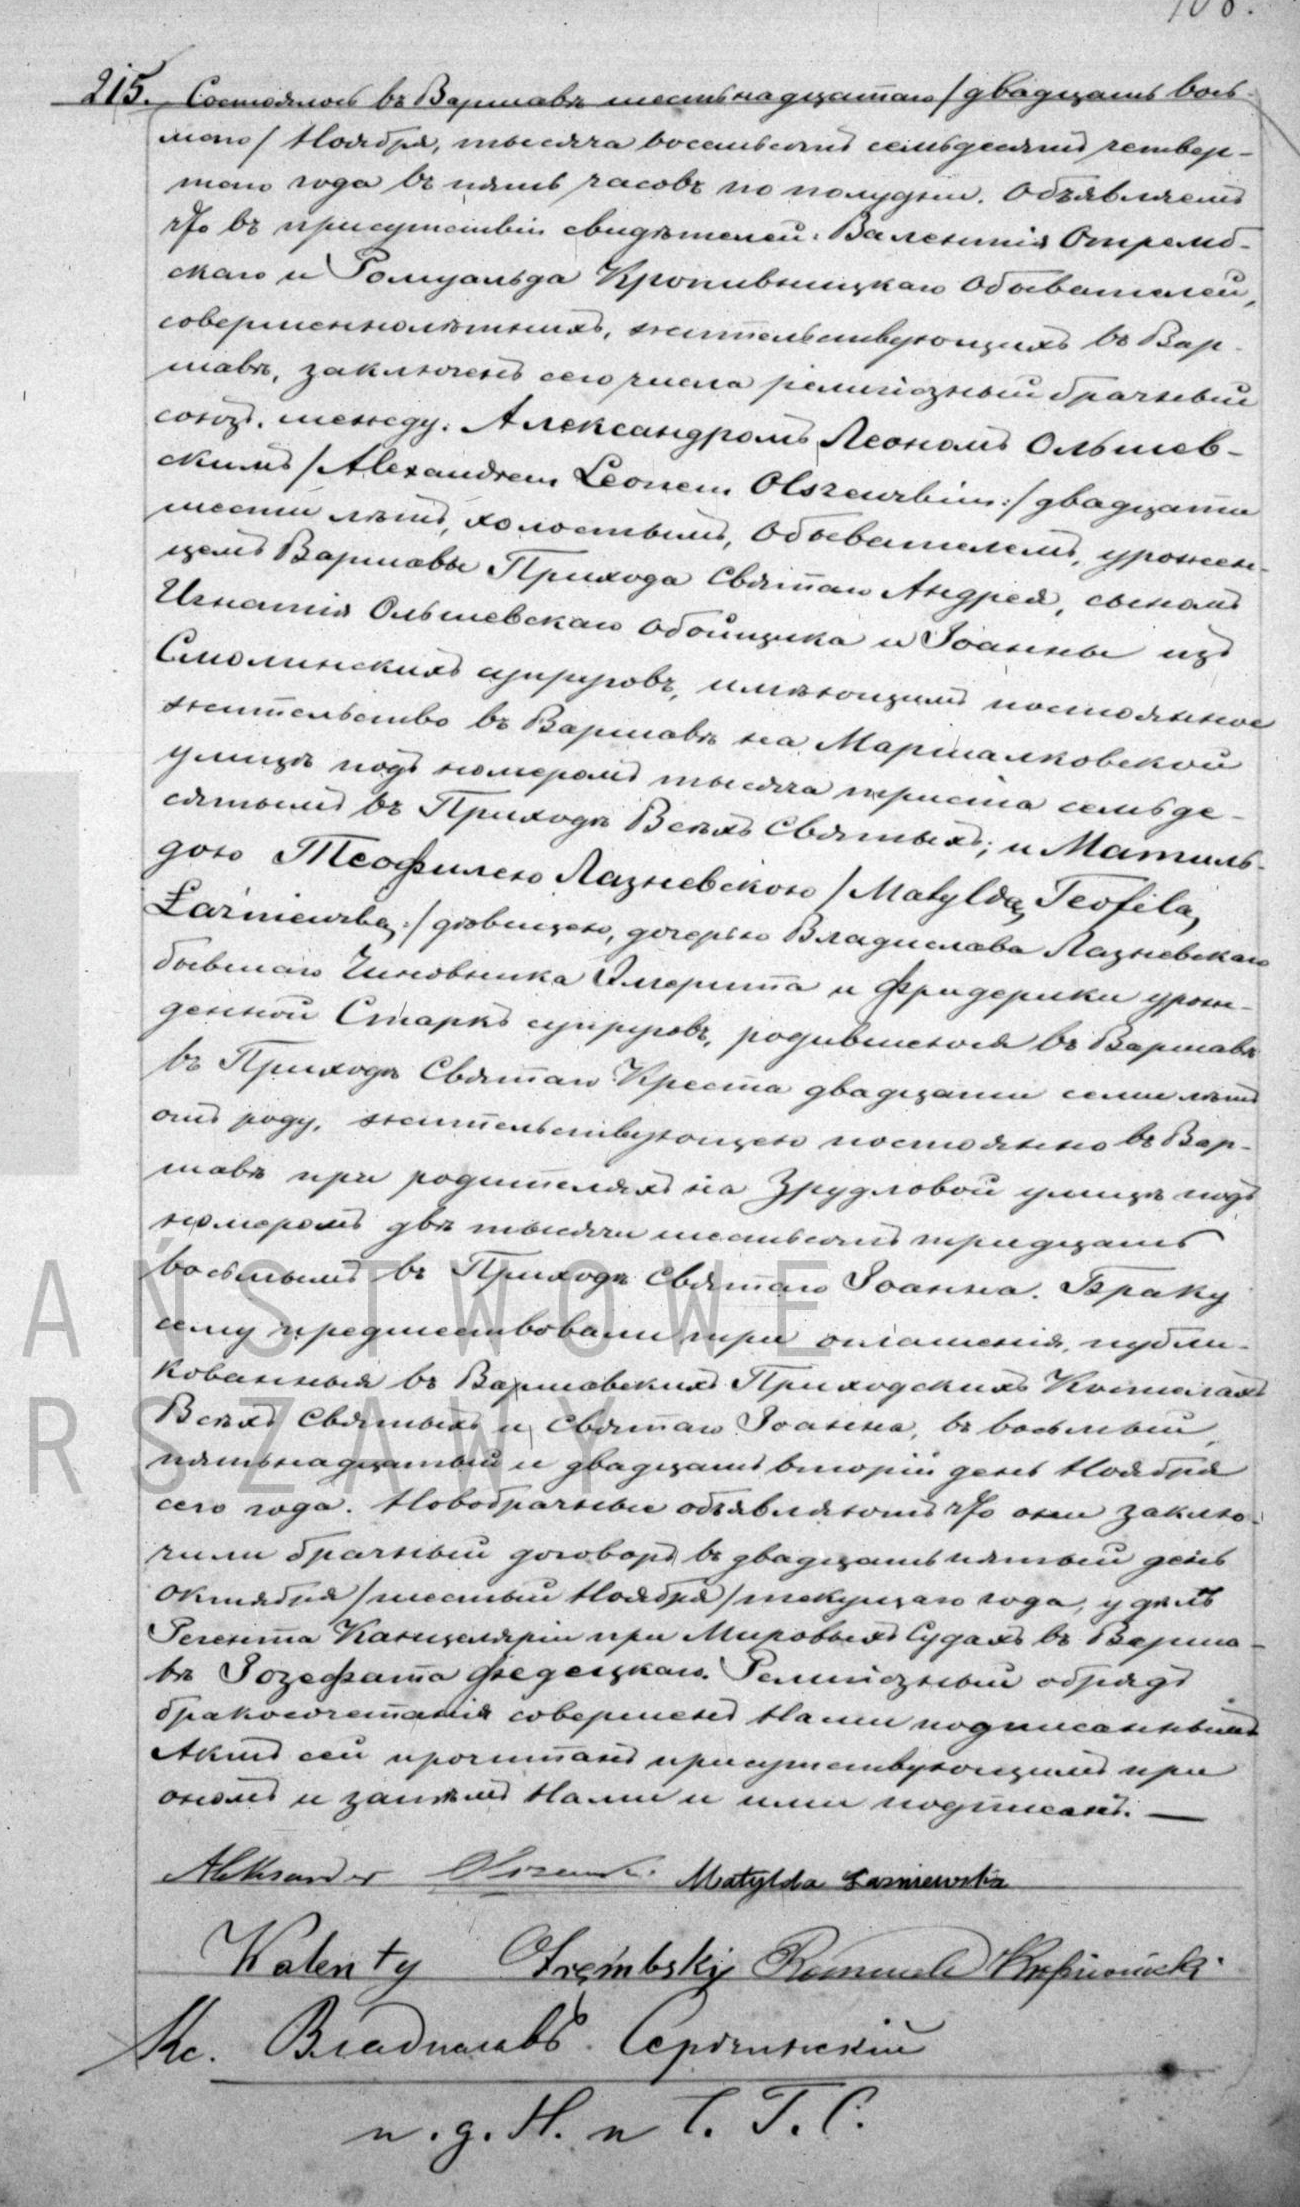 108.
215. Состоялось въ Варшавѣ шестьнадцатаго /двадцать вось-
маго/ Ноября, тысяча восемьсотъ семьдесятъ четвер-
таго года въ пять часовъ по полудни. Объявляемъ
что въ присутствіи свидѣтелей: Валентія Отремб-
скаго и Ромуальда Кропивницкаго Обывателей,
совершеннолѣтнихъ, жительствующихъ въ Вар-
шавѣ, заключенъ сего числа религіозный брачный
союзъ, между: Александромъ Леономъ Ольшев-
скимъ /Alexandrem Leonem Olszewskim:/ двадцати
шести лѣтъ, холостымъ, Обывателемъ, урожен-
цемъ Варшавы Прихода Святаго Андрея, сыномъ
Игнатія Ольшевскаго Обойщика и Іоанны изъ
Смолинскихъ супруговъ, имѣющимъ постоянное
жительство въ Варшавѣ на Маршалковской
улицѣ подъ номеромъ тысяча триста семьде-
сятымъ въ Приходѣ Всѣхъ Святыхъ; и Матиль-
дою Теофилею Лазневскою /Matyldą Teofilą
Łaźniewską:/ дѣвицею, дочерью Владислава Лазневскаго
бывшаго Чиновника Эмерита и Фридерики урож-
денной Старкъ супруговъ, родившеюся въ Варшавѣ
въ Приходѣ Святаго Креста двадцати семи лѣтъ
отъ роду, жительствующею постоянно въ Вар-
шавѣ при родителяхъ на Зрудловой улицѣ подъ
номеромъ двѣ тысячи шестьсотъ тридцать
восьмымъ въ Приходѣ Святаго Іоанна. Браку
сему предшествовали три оглашенія, публи-
кованныя въ Варшавскихъ Приходскихъ Костелахъ
Всѣхъ Святыхъ и Святаго Іоанна, въ восьмый,
пятьнадцатый и двадцать вторый день Ноября
сего года. Новобрачные объявляютъ что они заклю-
чили брачный договоръ въ двадцать пятый день
Октября /шестый Ноября/ текущаго года, у дѣлъ
Регента Канцеляріи при Мировыхъ Судахъ въ Варша-
вѣ Іозефата Федецкаго. Религіозный обрядъ
бракосочетанія совершенъ Нами подписаннымъ
Актъ сей прочитанъ присутствующимъ при
ономъ и затѣмъ Нами и ими подписанъ. —
Aleksander Olszewski. Matylda Łaźniewska
Walenty Otrembski Romuald Kropiwnicki.
Кс. Владиславъ Серочинскій
и. д. Н. и С. Г. С.
AŃSTWOWE
RSZAWY